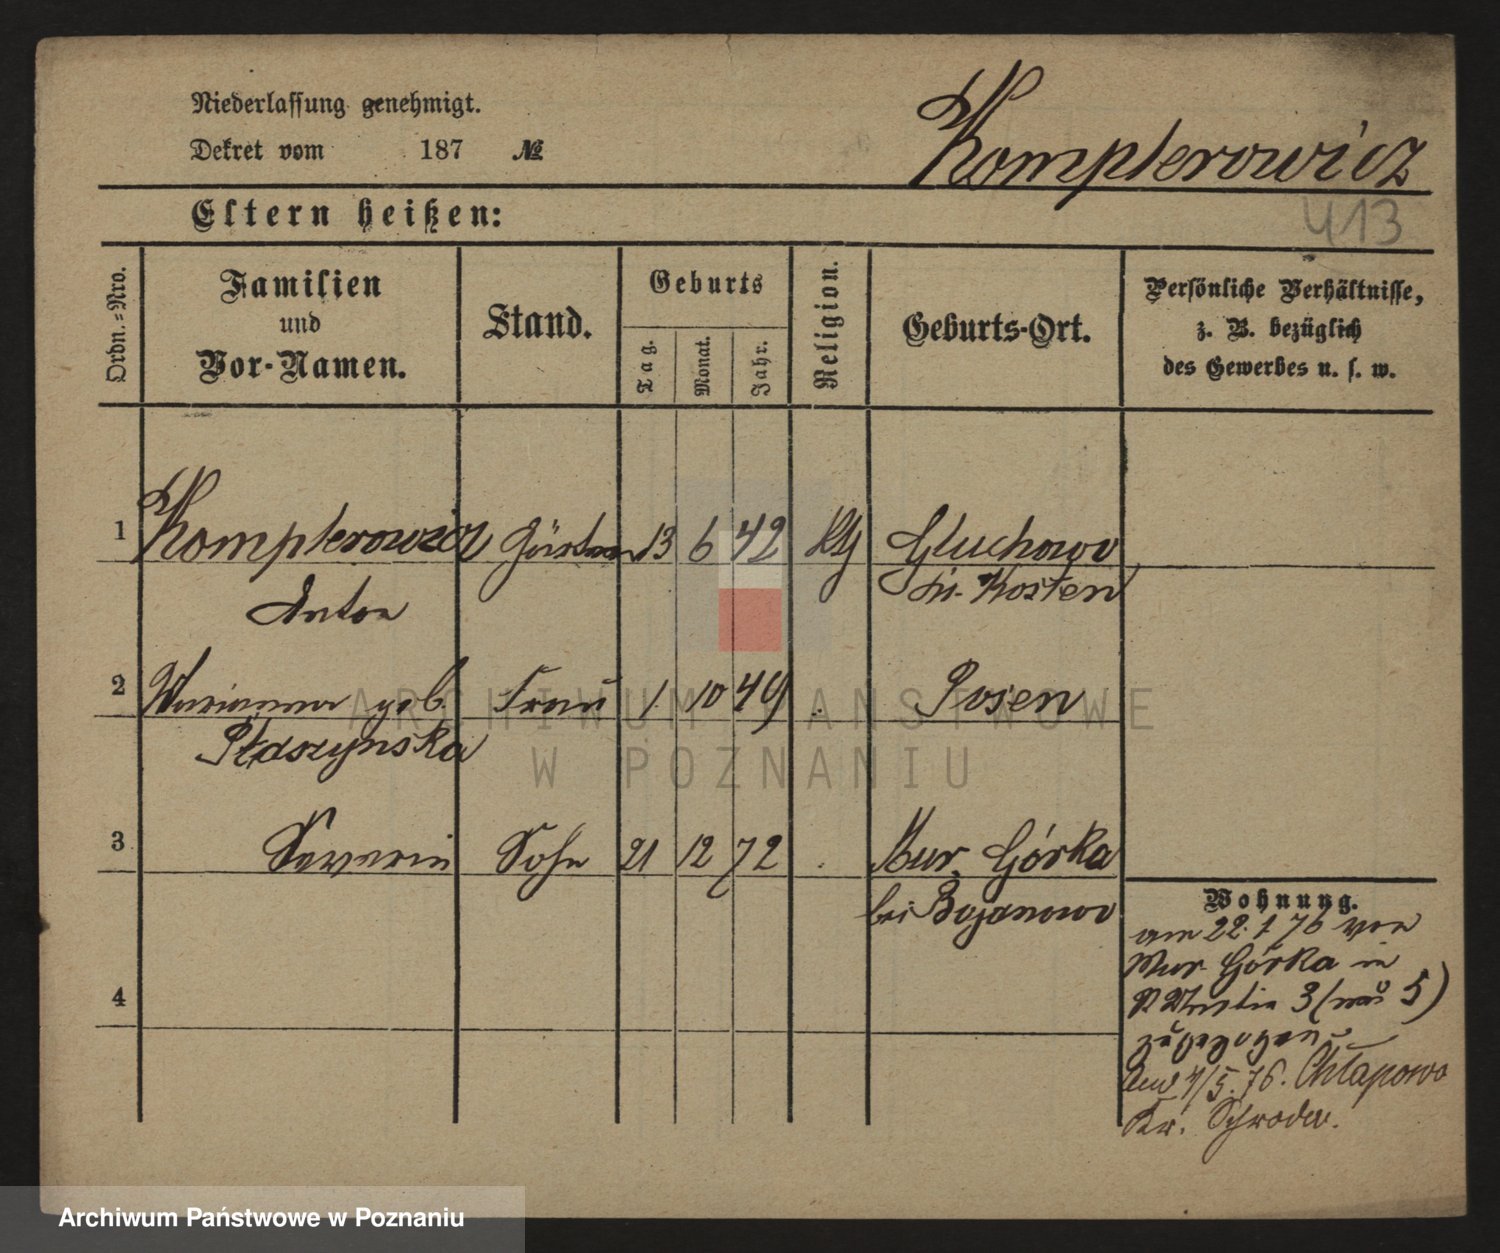 Niederlassung genehmigt.
Dekret vom 187 №
Kompterowicz
Eltern heißen:
413
Ordn.-Nro.
Familien
und
Vor-Namen.
Stand.
Geburts
Tag.
Monat.
Jahr.
Religion.
Geburts-Ort.
Persönliche Verhältnisse,
z. B. bezüglich
des Gewerbes u. s. w.
1 Kompterowicz Gärtner 13 6 42 Kth Gluchowo
Anton Kr. Kosten
2 Marianna geb. Frau 1. 10 49 . Posen
Ptaszynska
3 Severin Sohn 21 12 72 . Mur. Górka
bei Bojanowo
4
Wohnung.
am 22.1 76 von
Mur. Górka in
3 (neu 5)
zugezogen
4/5. 76. Chlapowo
Kr. Schroda.
ARCHIWUM PAŃSTWOWE
W POZNANIU
Archiwum Państwowe w Poznaniu